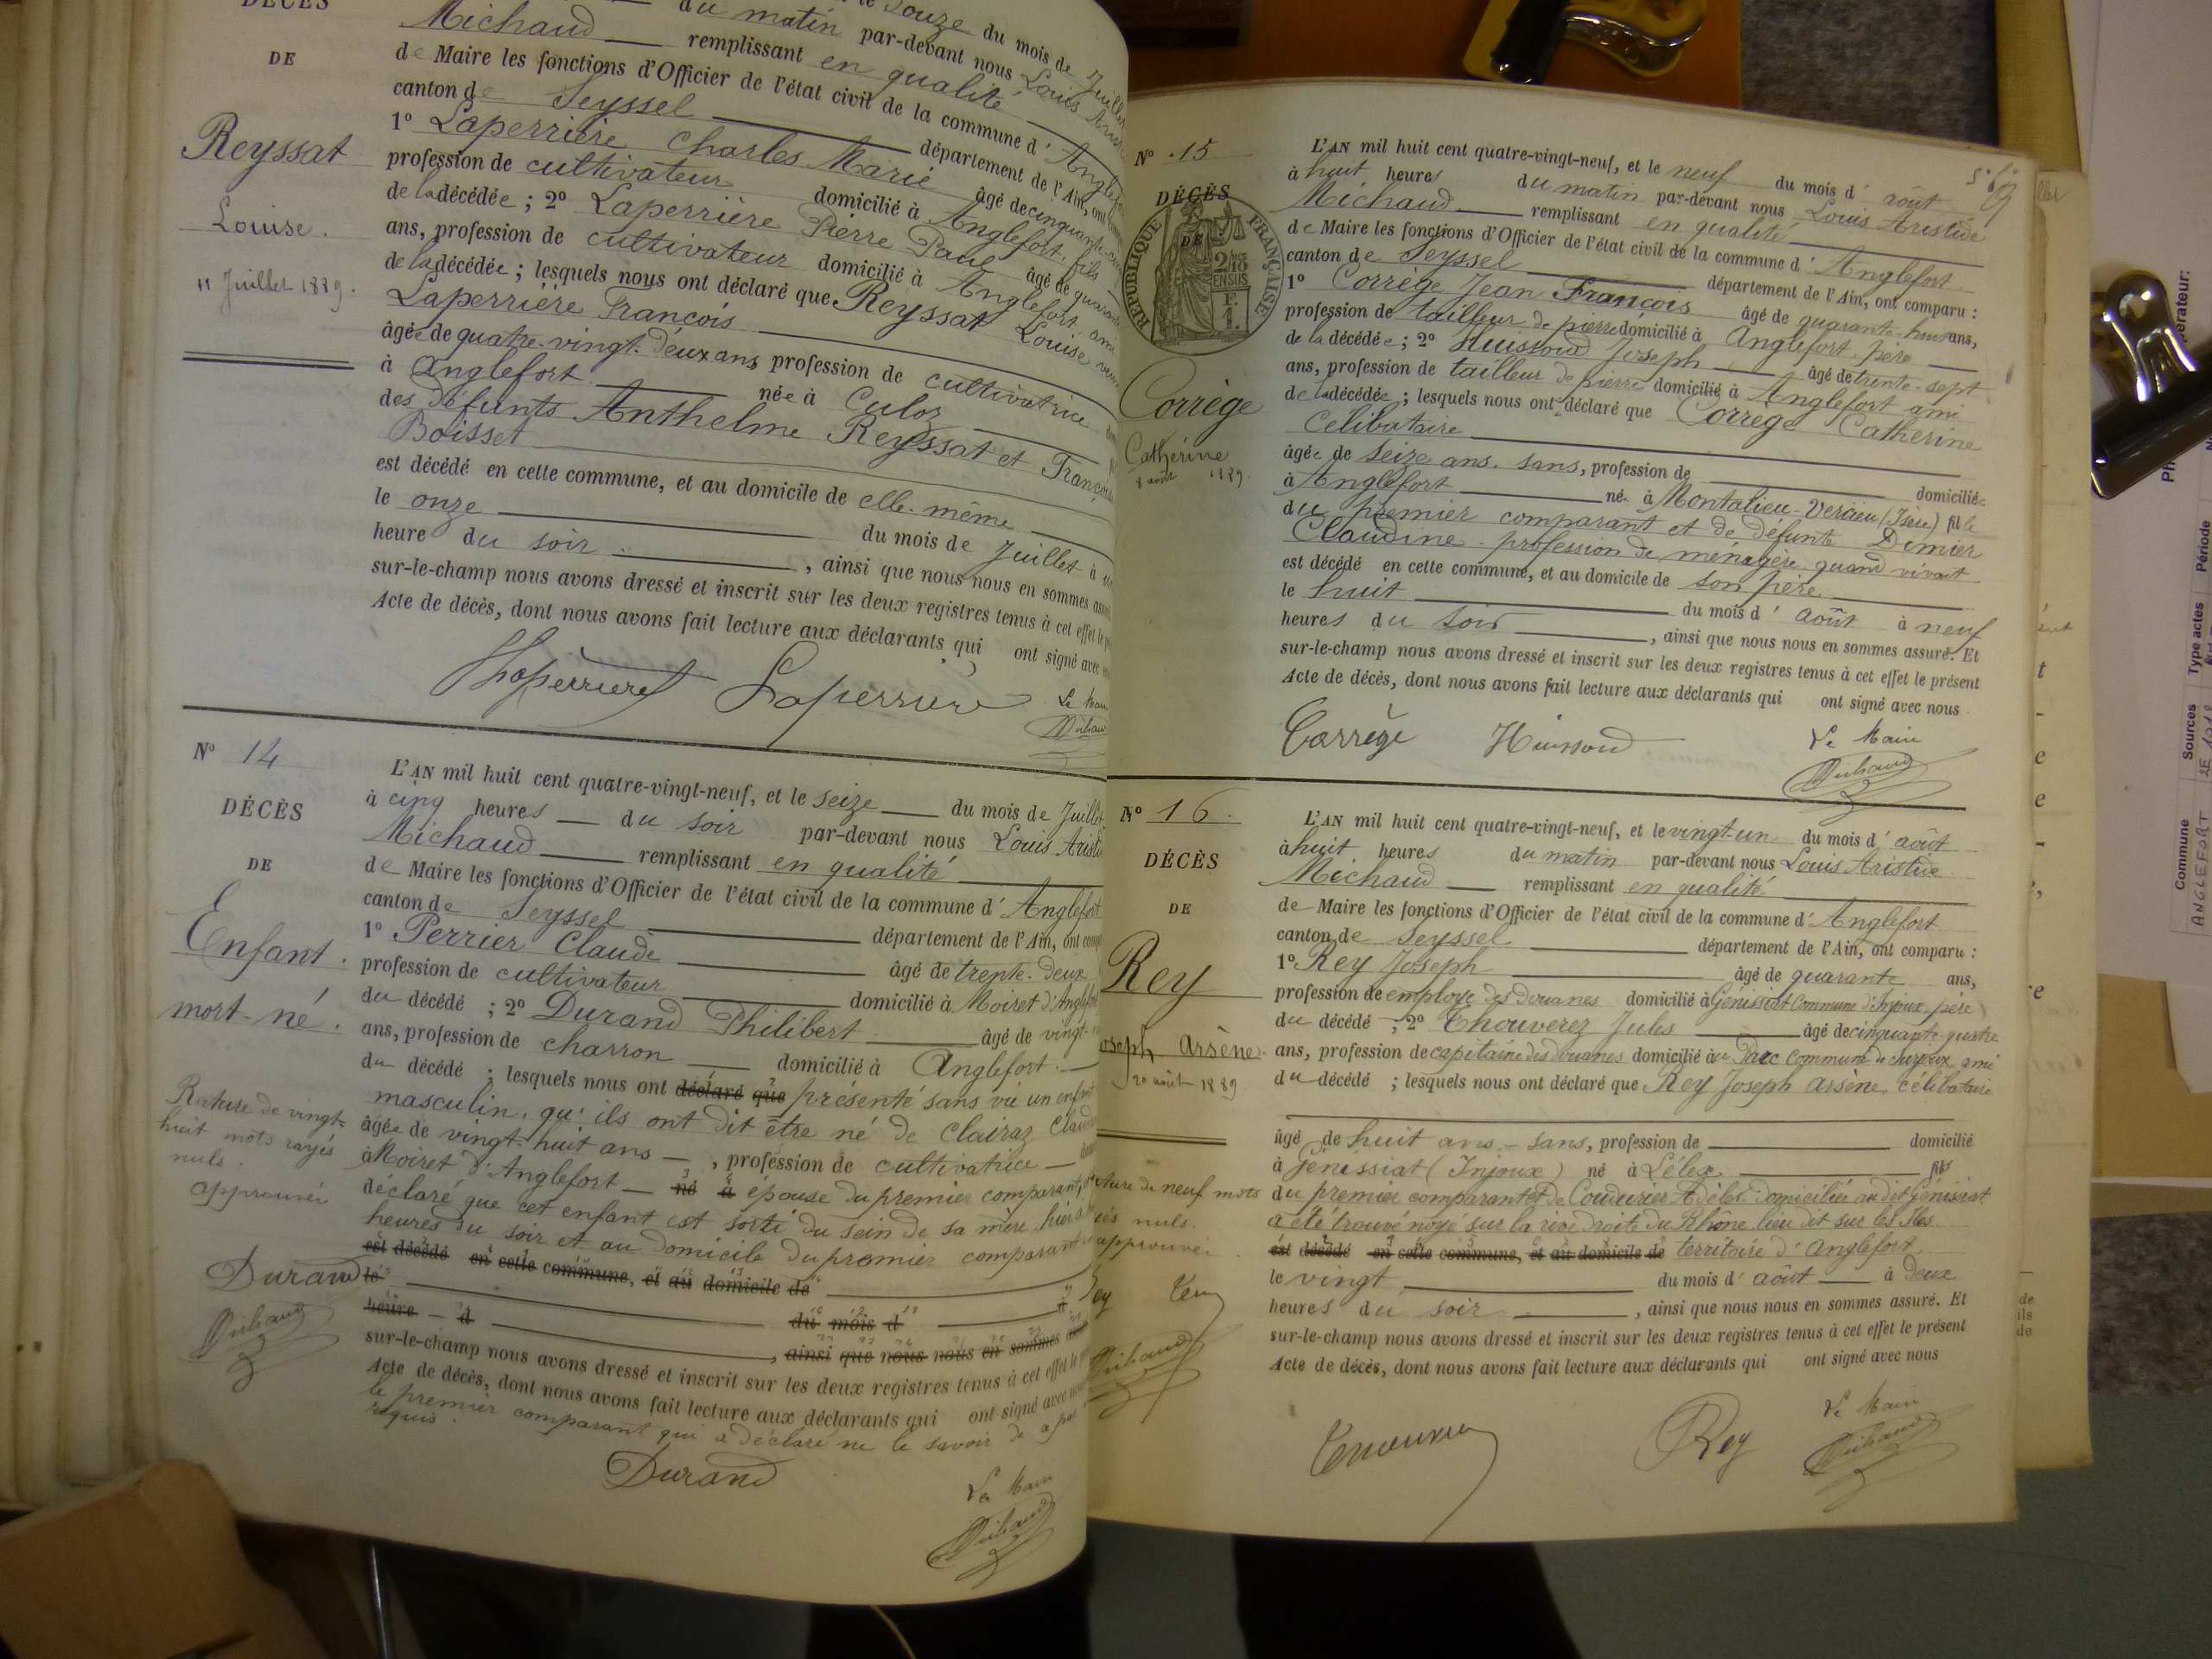 DÉCÈS
DE
Reyssat
Louise.
11 Juillet 1889.
douze du mois de Juillet
du matin par-devant nous Louis
Michaud remplissant en qualité
de Maire les fonctions d'Officier de l'état civil de la commune d'
canton de Seyssel département de l'Ain, ont
1º Laperrière Charles Marie âgé de cinquante
profession de cultivateur domicilié à Anglefort, fils
de la décédée ; 2º Laperrière Pierre Paul âgé de
ans, profession de cultivateur domicilié à Anglefort,
de la décédée ; lesquels nous ont déclaré que Reyssat Louise,
Laperrière François
âgée de quatre-vingt-deux ans, profession de cultivatrice
à Anglefort née à Culoz
des défunts Anthelme Reyssat et
Boisset
est décédé en cette commune, et au domicile de elle-même
le onze du mois de Juillet à
heure du soir , ainsi que nous nous en sommes
sur-le-champ nous avons dressé et inscrit sur les deux registres tenus à cet effet
Acte de décès, dont nous avons fait lecture aux déclarants qui ont signé avec
Laperrière Laperrière
Nº 14
DÉCÈS
DE
Enfant.
mort-né.
Rature de vingt-
huit mots rayés
nuls.
approuvée
Durand
L'AN mil huit cent quatre-vingt-neuf, et le seize du mois de Juillet
à cinq heures du soir par-devant nous Louis
Michaud remplissant en qualité
de Maire les fonctions d'Officier de l'état civil de la commune d' Anglefort
canton de Seyssel département de l'Ain, ont
1º Perrier Claude âgé de trente-deux
profession de cultivateur domicilié à Moiret d'
du décédé ; 2º Durand Philibert âgé de vingt-
ans, profession de charron domicilié à Anglefort.
du décédé ; lesquels nous ont déclaré que présenté sans vie un
masculin, qu'ils ont dit être né de Clairaz
âgée de vingt-huit ans , profession de cultivatrice
à Moiret d'Anglefort né à épouse du premier comparant,
déclaré que cet enfant est sorti du sein de sa mère, hier
heures du soir et au domicile du premier comparant
est décédé en cette commune, et au domicile de
le
heure d du mois d
, ainsi que nous nous en sommes
sur-le-champ nous avons dressé et inscrit sur les deux registres tenus à cet effet le
Acte de décès, dont nous avons fait lecture aux déclarants qui ont signé avec
le premier comparant qui a déclaré ne le savoir de
requis.
Durand
Le Maire
Michaud
Nº 15
DÉCÈS
DE
RÉPUBLIQUE FRANÇAISE
Corrège
Catherine
8 août 1889.
L'AN mil huit cent quatre-vingt-neuf, et le neuf du mois d' août
à huit heures du matin par-devant nous Louis Aristide
Michaud remplissant en qualité
de Maire les fonctions d'Officier de l'état civil de la commune d' Anglefort
canton de Seyssel département de l'Ain, ont comparu :
1º Corrège Jean François âgé de quarante-huit ans,
profession de tailleur de pierre domicilié à Anglefort, père
de la décédée ; 2º Huissoud Joseph âgé de trente-sept
ans, profession de tailleur de pierre domicilié à Anglefort ami
de la décédée ; lesquels nous ont déclaré que Corrège Catherine
Célibataire
âgée de seize ans. sans, profession de domiciliée
à Anglefort né à Montalieu-Vercieu (Isère) fille
du premier comparant et de défunte Dimier
Claudine. profession de ménagère quand vivait
est décédé en cette commune, et au domicile de son père
le huit du mois d' août à neuf
heures du soir , ainsi que nous nous en sommes assuré. Et
sur-le-champ nous avons dressé et inscrit sur les deux registres tenus à cet effet le présent
Acte de décès, dont nous avons fait lecture aux déclarants qui ont signé avec nous.
Corrège Huissoud Le Maire
Michaud
Nº 16.
DÉCÈS
DE
Rey
Joseph Arsène.
20 août 1889
Rature de neuf mots
nuls.
approuvée
Rey
L'AN mil huit cent quatre-vingt-neuf, et le vingt-un du mois d' août
à huit heures du matin par-devant nous Louis Aristide
Michaud remplissant en qualité
de Maire les fonctions d'Officier de l'état civil de la commune d' Anglefort
canton de Seyssel département de l'Ain, ont comparu :
1º Rey Joseph âgé de quarante ans,
profession de employé des Douanes domicilié à Génissiat Commune d'Injoux, père
du décédé ; 2º Thouverez Jules âgé de cinquante-quatre
ans, profession de capitaine des douanes domicilié au Parc Commune de Surjoux ami
du décédé ; lesquels nous ont déclaré que Rey Joseph Arsène, célibataire
âgé de huit ans. sans, profession de domicilié
à Génissiat (Injoux) né à Lélex fils
du premier comparant et de Coudurier Adèle. domiciliée au dit Génissiat
a été trouvé noyé sur la rive droite du Rhône lieu dit sur les Iles
est décédé en cette commune, et au domicile de territoire d'Anglefort
le vingt du mois d' août à deux
heures du soir , ainsi que nous nous en sommes assuré. Et
sur-le-champ nous avons dressé et inscrit sur les deux registres tenus à cet effet le présent
Acte de décès, dont nous avons fait lecture aux déclarants qui ont signé avec nous
Rey Le Maire
Michaud
Commune Sources Type actes Période
ANGLEFORT